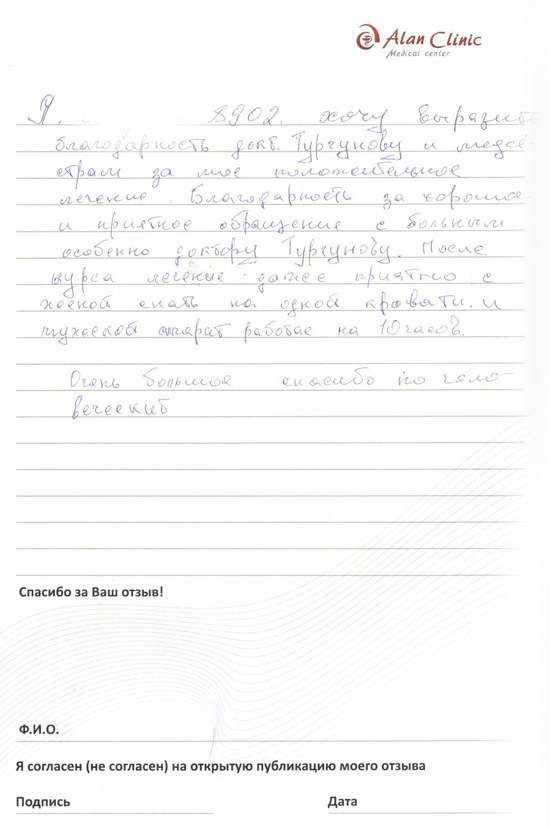 Alan Clinic
Medical center
Я, 8902. хочу выразить
благодарность докт. Тургунову и медсё
страм за мое положительное
лечение. Благодарность за хорошое
и приятное обращение с больным
особенно доктору Тургунову. После
курса лечение даже приятно с
женой спать на одной кровати. и
мужской апарат работае на 10 часов.
Очень большое спасибо по чело-
веческий
Спасибо за Ваш отзыв!
Ф.И.О.
Я согласен (не согласен) на открытую публикацию моего отзыва
Подпись Дата